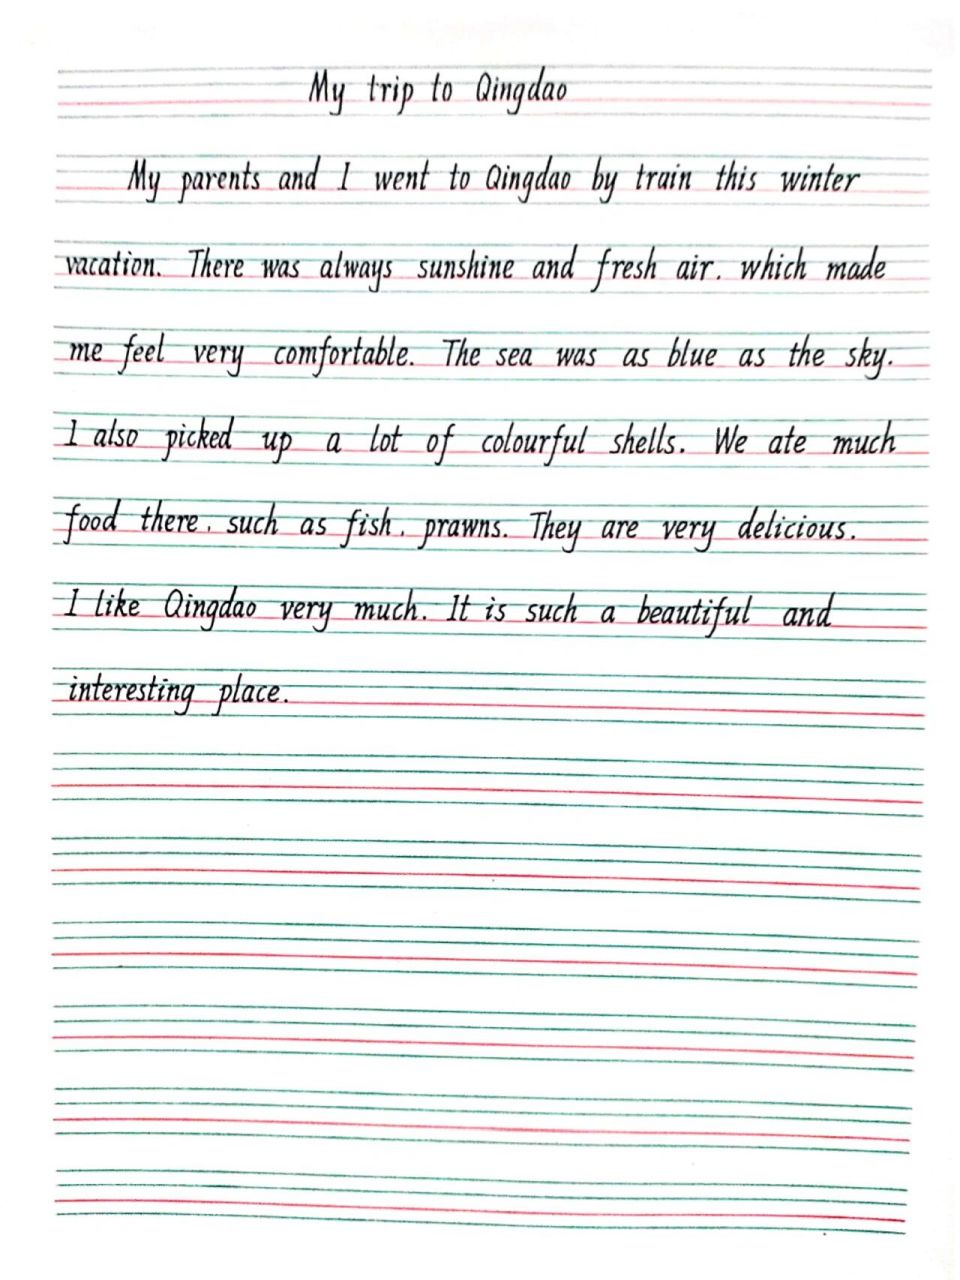 My trip to Qingdao
My parents and I went to Qingdao by train this winter
vacation. There was always sunshine and fresh air, which made
me feel very comfortable. The sea was as blue as the sky.
I also picked up a lot of colourful shells. We ate much
food there, such as fish, prawns. They are very delicious.
I like Qingdao very much. It is such a beautiful and
interesting place.